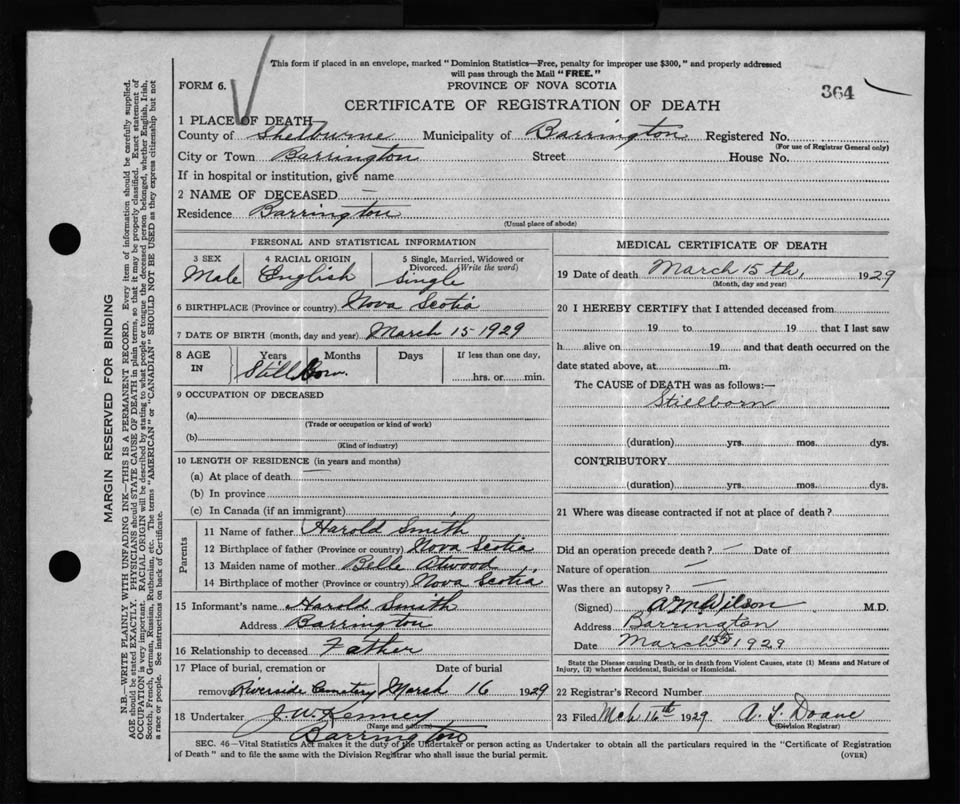 This form if placed in an envelope, marked "Dominion Statistics—Free, penalty for improper use $300," and properly addressed
will pass through the Mail "FREE."
FORM 6.
PROVINCE OF NOVA SCOTIA
364
CERTIFICATE OF REGISTRATION OF DEATH
1 PLACE OF DEATH
County of Shelburne Municipality of Barrington Registered No.
(For use of Registrar General only)
City or Town Barrington Street House No.
If in hospital or institution, give name
2 NAME OF DECEASED —
Residence Barrington
(Usual place of abode)
PERSONAL AND STATISTICAL INFORMATION
3 SEX 4 RACIAL ORIGIN 5 Single, Married, Widowed or
Divorced. (Write the word)
Male English Single
6 BIRTHPLACE (Province or country) Nova Scotia
7 DATE OF BIRTH (month, day and year) March 15-1929
8 AGE IN Years Months Days If less than one day,
Still born. hrs. or min.
9 OCCUPATION OF DECEASED
(a)
(Trade or occupation or kind of work)
(b)
(Kind of industry)
10 LENGTH OF RESIDENCE (in years and months)
(a) At place of death
(b) In province
(c) In Canada (if an immigrant)
Parents
11 Name of father Harold Smith
12 Birthplace of father (Province or country) Nova Scotia
13 Maiden name of mother Belle Atwood
14 Birthplace of mother (Province or country) Nova Scotia
15 Informant's name Harold Smith
Address Barrington
16 Relationship to deceased Father
17 Place of burial, cremation or Date of burial
removal Riverside Cemetery March 16 1929
18 Undertaker J. W. Kenney
(Name and address)
Barrington
MEDICAL CERTIFICATE OF DEATH
19 Date of death March 15th, 1929
(Month, day and year)
20 I HEREBY CERTIFY that I attended deceased from
19 to 19 that I last saw
h alive on 19 and that death occurred on the
date stated above, at m.
The CAUSE of DEATH was as follows:—
Stillborn
(duration) yrs. mos. dys.
CONTRIBUTORY
(duration) yrs. mos. dys.
21 Where was disease contracted if not at place of death?
Did an operation precede death? — Date of
Nature of operation —
Was there an autopsy? —
(Signed) A M Wilson M.D.
Address Barrington
Date March 15th 1929
State the Disease causing Death, or in death from Violent Causes, state (1) Means and Nature of
Injury, (2) whether Accidental, Suicidal or Homicidal.
22 Registrar's Record Number
23 Filed Mch 16th 1929 A. L. Doane
(Division Registrar)
SEC. 46—Vital Statistics Act makes it the duty of the Undertaker or person acting as Undertaker to obtain all the particulars required in the "Certificate of Registration
of Death" and to file the same with the Division Registrar who shall issue the burial permit. (OVER)
MARGIN RESERVED FOR BINDING
N.B.—WRITE PLAINLY WITH UNFADING INK—THIS IS A PERMANENT RECORD. Every item of information should be carefully supplied.
AGE should be stated EXACTLY. PHYSICIANS should STATE CAUSE OF DEATH in plain terms, so that it may be properly classified. Exact statement of
OCCUPATION is very important. RACIAL ORIGIN will be described by stating to what people or tongue the deceased person belonged, whether English, Irish,
Scotch, French, German, Russian, Ruthenian, etc. The terms "AMERICAN" or "CANADIAN" SHOULD NOT BE USED as they express citizenship but not
a race or people. See instructions on back of Certificate.